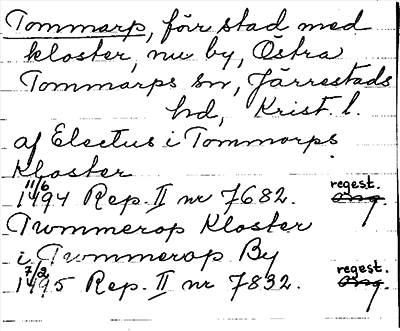 Tommarp, förr stad med
kloster, nu by, Östra
Tommarps sn, Järrestads
hd, Krist. l.
af Electus i Tommorps
Kloster
11/6 regest.
1494 Rep. II nr 7682. orig.
Twmmerop Kloster
i Twmmerop By
7/2 regest.
1495 Rep. II nr 7832. orig.